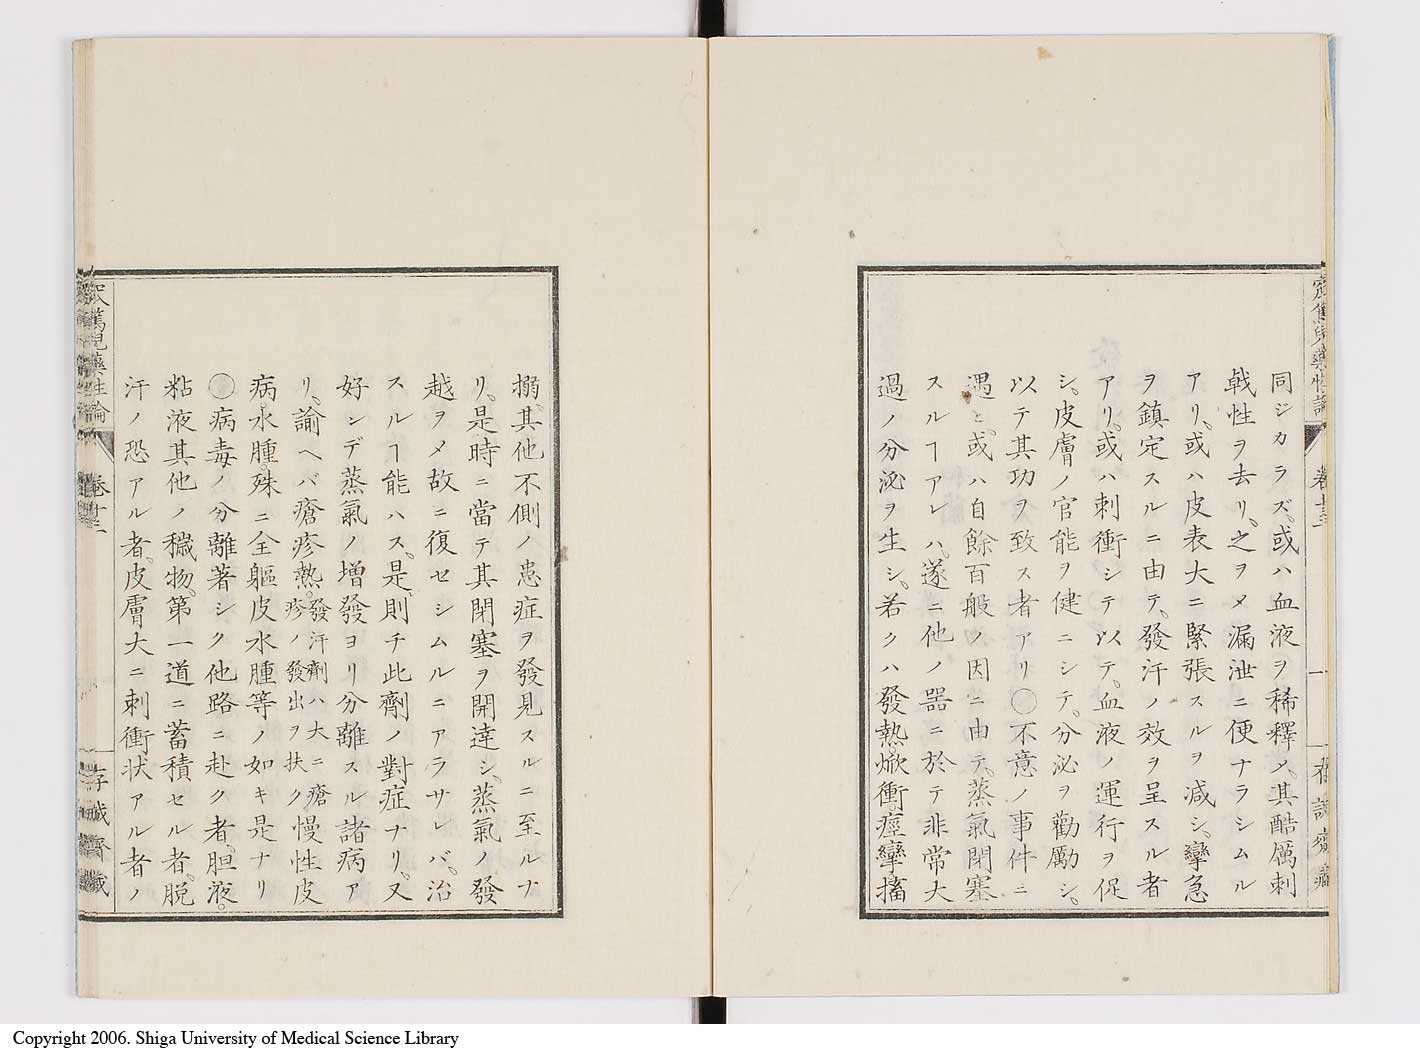 同ジカラズ。或ハ血液ヲ稀釋メ。其酷厲刺
戟性ヲ去リ。之ヲメ漏泄ニ便ナラシムル
アリ。或ハ皮表大ニ緊張スルヲ減シ。攣急
ヲ鎮定スルニ由テ。發汗ノ效ヲ呈スル者
アリ。或ハ刺衝シテ以テ。血液ノ運行ヲ促
シ。皮膚ノ官能ヲ健ニシテ。分泌ヲ勸勵シ。
以テ其功ヲ致ス者アリ〇不意ノ事件ニ
遇ヒ。或ハ自餘百般ノ因ニ由テ。蒸氣閉塞
スルヿアレハ。遂ニ他ノ器ニ於テ非常大
過ノ分泌ヲ生シ。若クハ發熱。焮衝。痙攣。搐
搦。其他不側ノ患症ヲ發見スルニ至ルナ
リ。是時ニ當テ其閉塞ヲ開達シ。蒸氣ノ發
越ヲメ故ニ復セシムルニアラサレバ。治
スルヿ能ハス。是則チ此劑ノ對症ナリ。又
好ンデ蒸氣ノ増發ヨリ分離スル諸病ア
リ。諭ヘバ瘡疹熱。發汗劑ハ大ニ瘡疹ノ發出ヲ扶ク慢性皮
病。水腫。殊ニ全軀皮水腫等ノ如キ是ナリ
〇病毒ノ分離著シク他路ニ赴ク者。胆液。
粘液其他ノ穢物。第一道ニ蓄積セル者。脱
汗ノ恐アル者。皮膚大ニ刺衝状アル者ノ
窊篤兒藥性論
卷十三
存誠齋藏
Copyright 2006. Shiga University of Medical Science Library